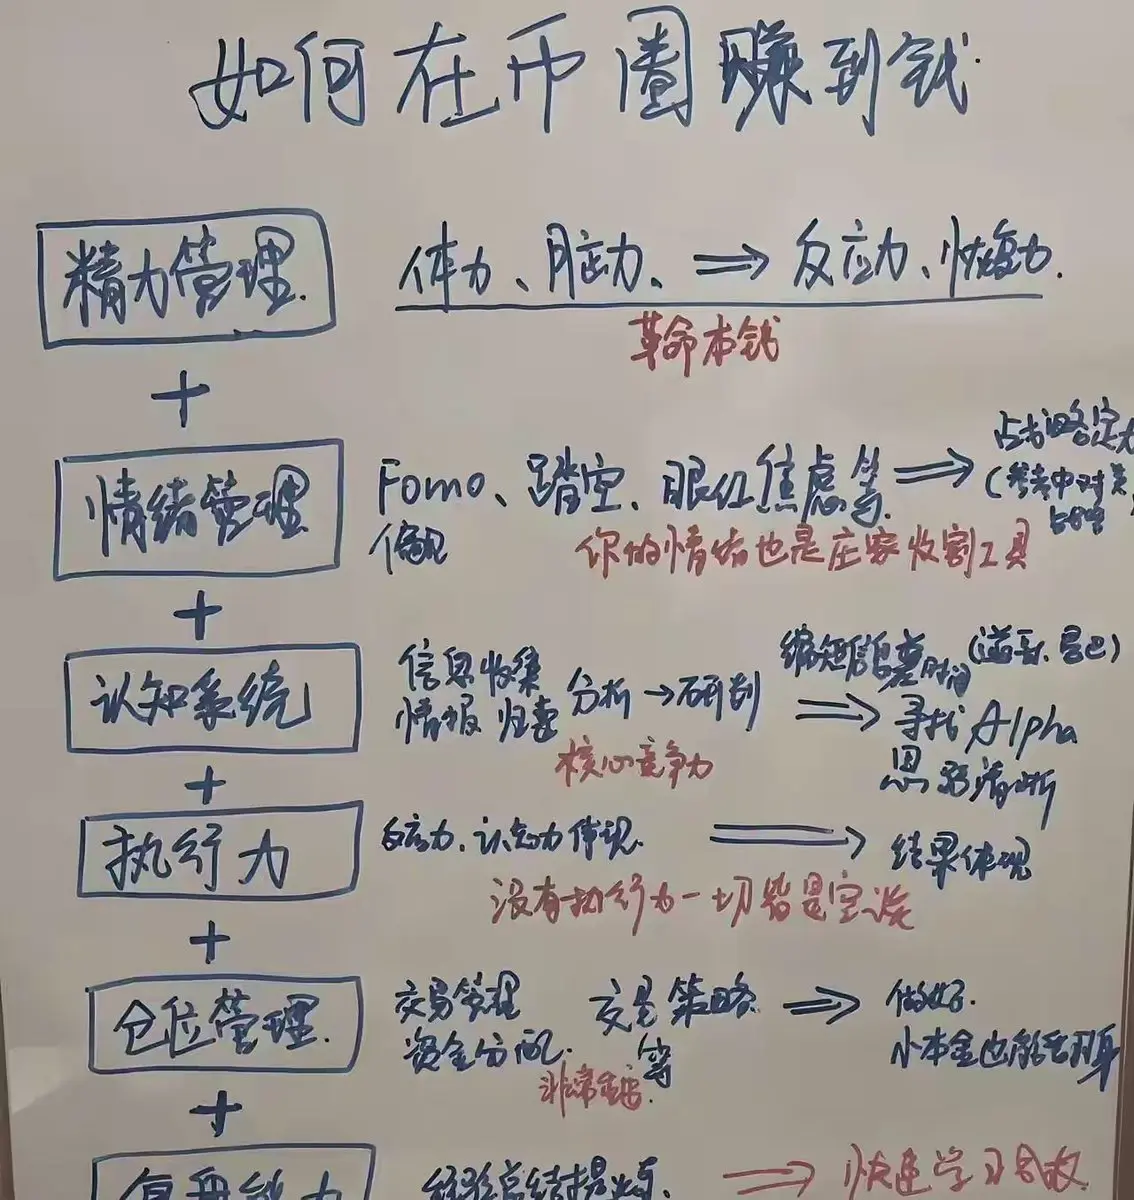 如何在币圈赚到钱
精力管理. 体力、脑力、⇒ 反应力、恢复力.
革命本钱
+
情绪管理 Fomo、踏空、眼红焦虑等 ⇒
偏见
你的情绪也是庄家收割工具
+
认知系统 信息收集 分析→研判 ⇒ 寻找Alpha
情报 归集
缩短信息差时间
思路清晰
核心竞争力
+
执行力 反应力、认知力体现. ⇒ 结果体现
没有执行力一切皆是空谈
+
仓位管理. 交易管理 交易策略 ⇒ 做好.
资金分配. 等
小本金也能翻身
非常重要.
+
复盘能力 经验总结提炼. → 快速学习